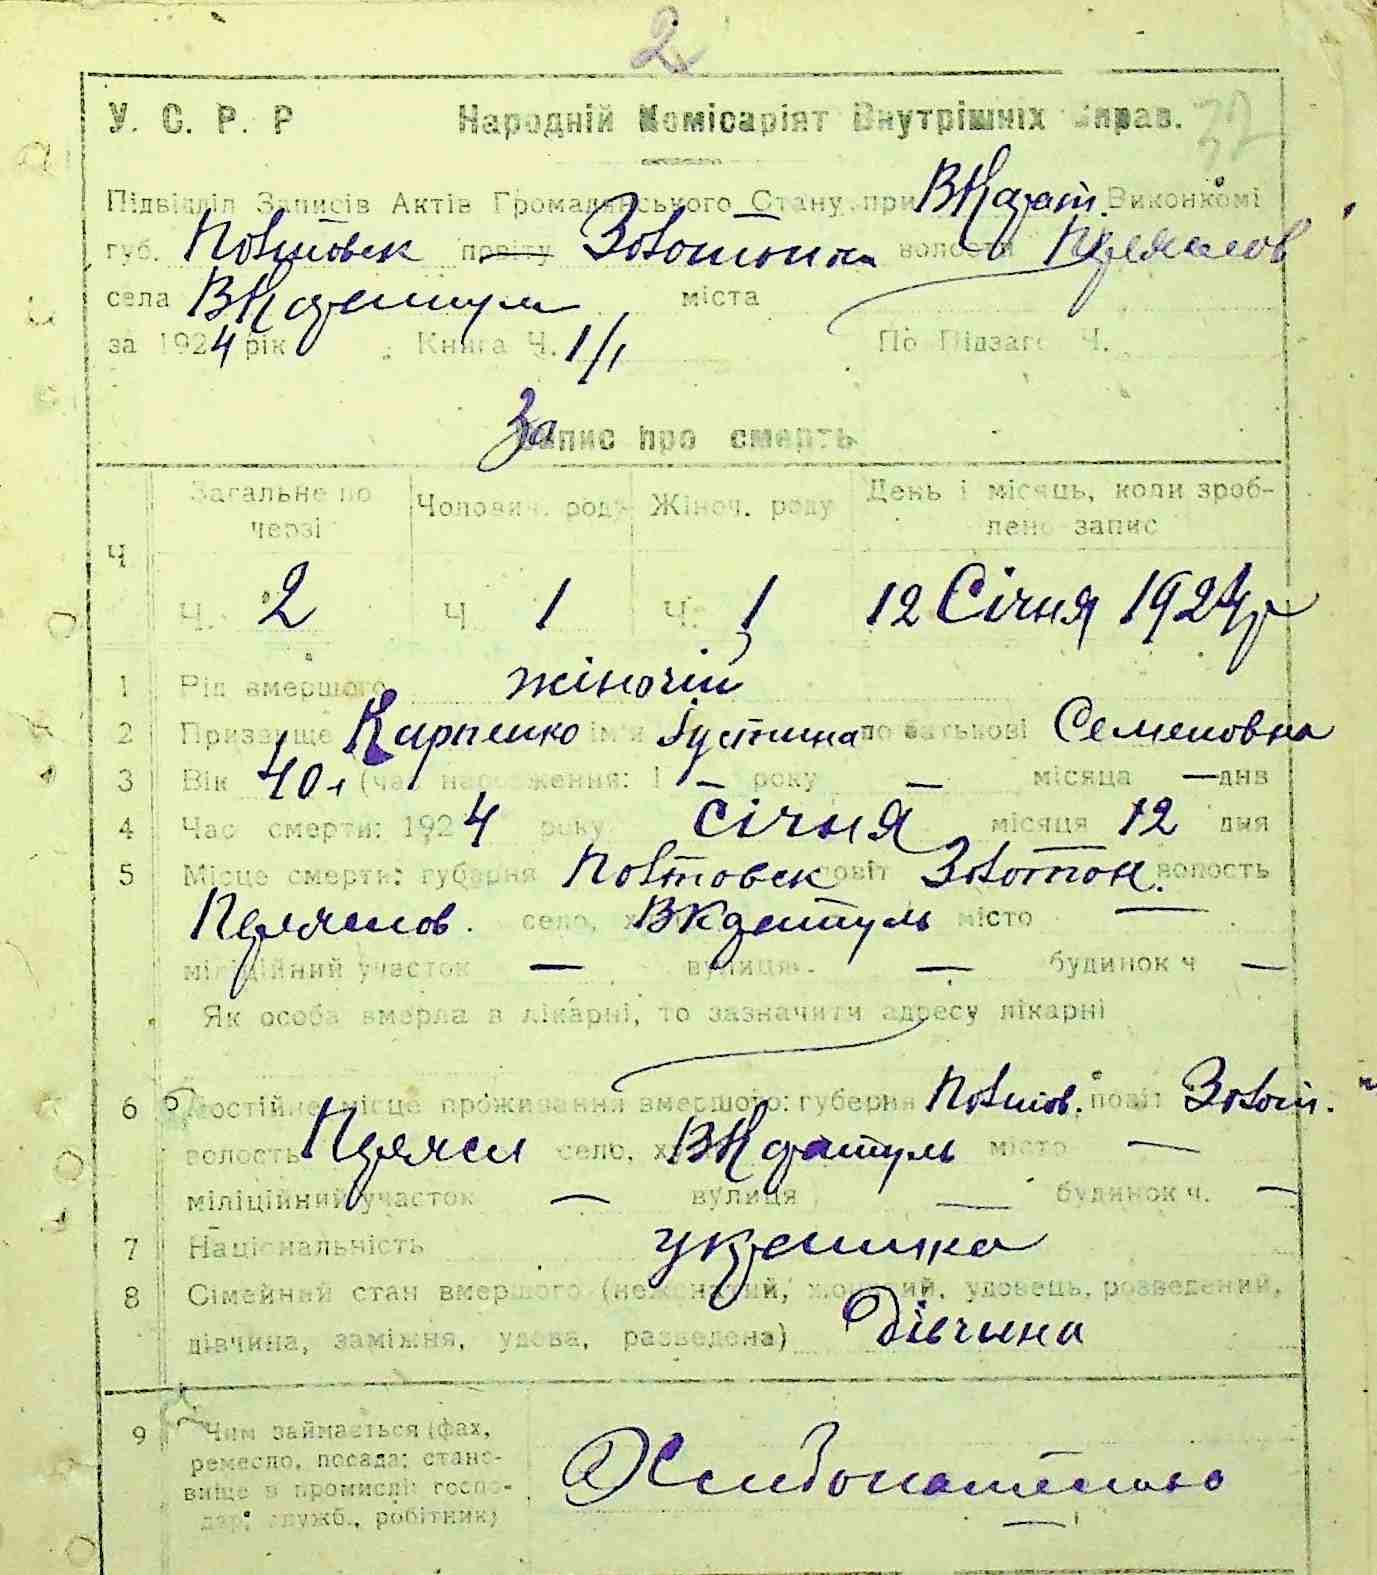 2
У. С. Р. Р Народній Комісаріят Внутрішніх Справ. 32
Підвідділ Записів Актів Громадянського Стану при ВКарат. Виконкомі
губ. Полтовск повіту Золотонск волости
села міста
за 1924 рік Книга Ч. 1/1 По Підзаг. Ч.
Запис про смерть
Ч Загальне по черзі Чоловіч. роду Жіноч. роду День і місяць, коли зроблено запис
Ч. 2 Ч 1 Ч. 1 12 Січня 1924 р
1 Рід вмершого жіночій
2 Призвище Карпенко ім'я Іустина по батькові Семеновна
3 Вік 40 л (час народження: 1 року — місяця — днв
4 Час смерти: 1924 року січня місяця 12 дня
5 Місце смерти: губерня Полтовск повіт Золотон. волость
село, місто —
міліційний участок — вулиця — будинок ч —
Як особа вмерла в лікарні, то зазначити адресу лікарні
6 Постійне місце проживання вмершого: губерня Полтов. повіт Золот.
волость село, місто —
міліційний участок — вулиця — будинок ч. —
7 Національність українка
8 Сімейний стан вмершого (неженатий, жонатий, удовець, розведений,
дівчина, заміжня, удова, разведена) Дівчина
9 Чим займається (фах,
ремесло, посада; стано-
вище в промислі: госпо-
дар, служб., робітник)